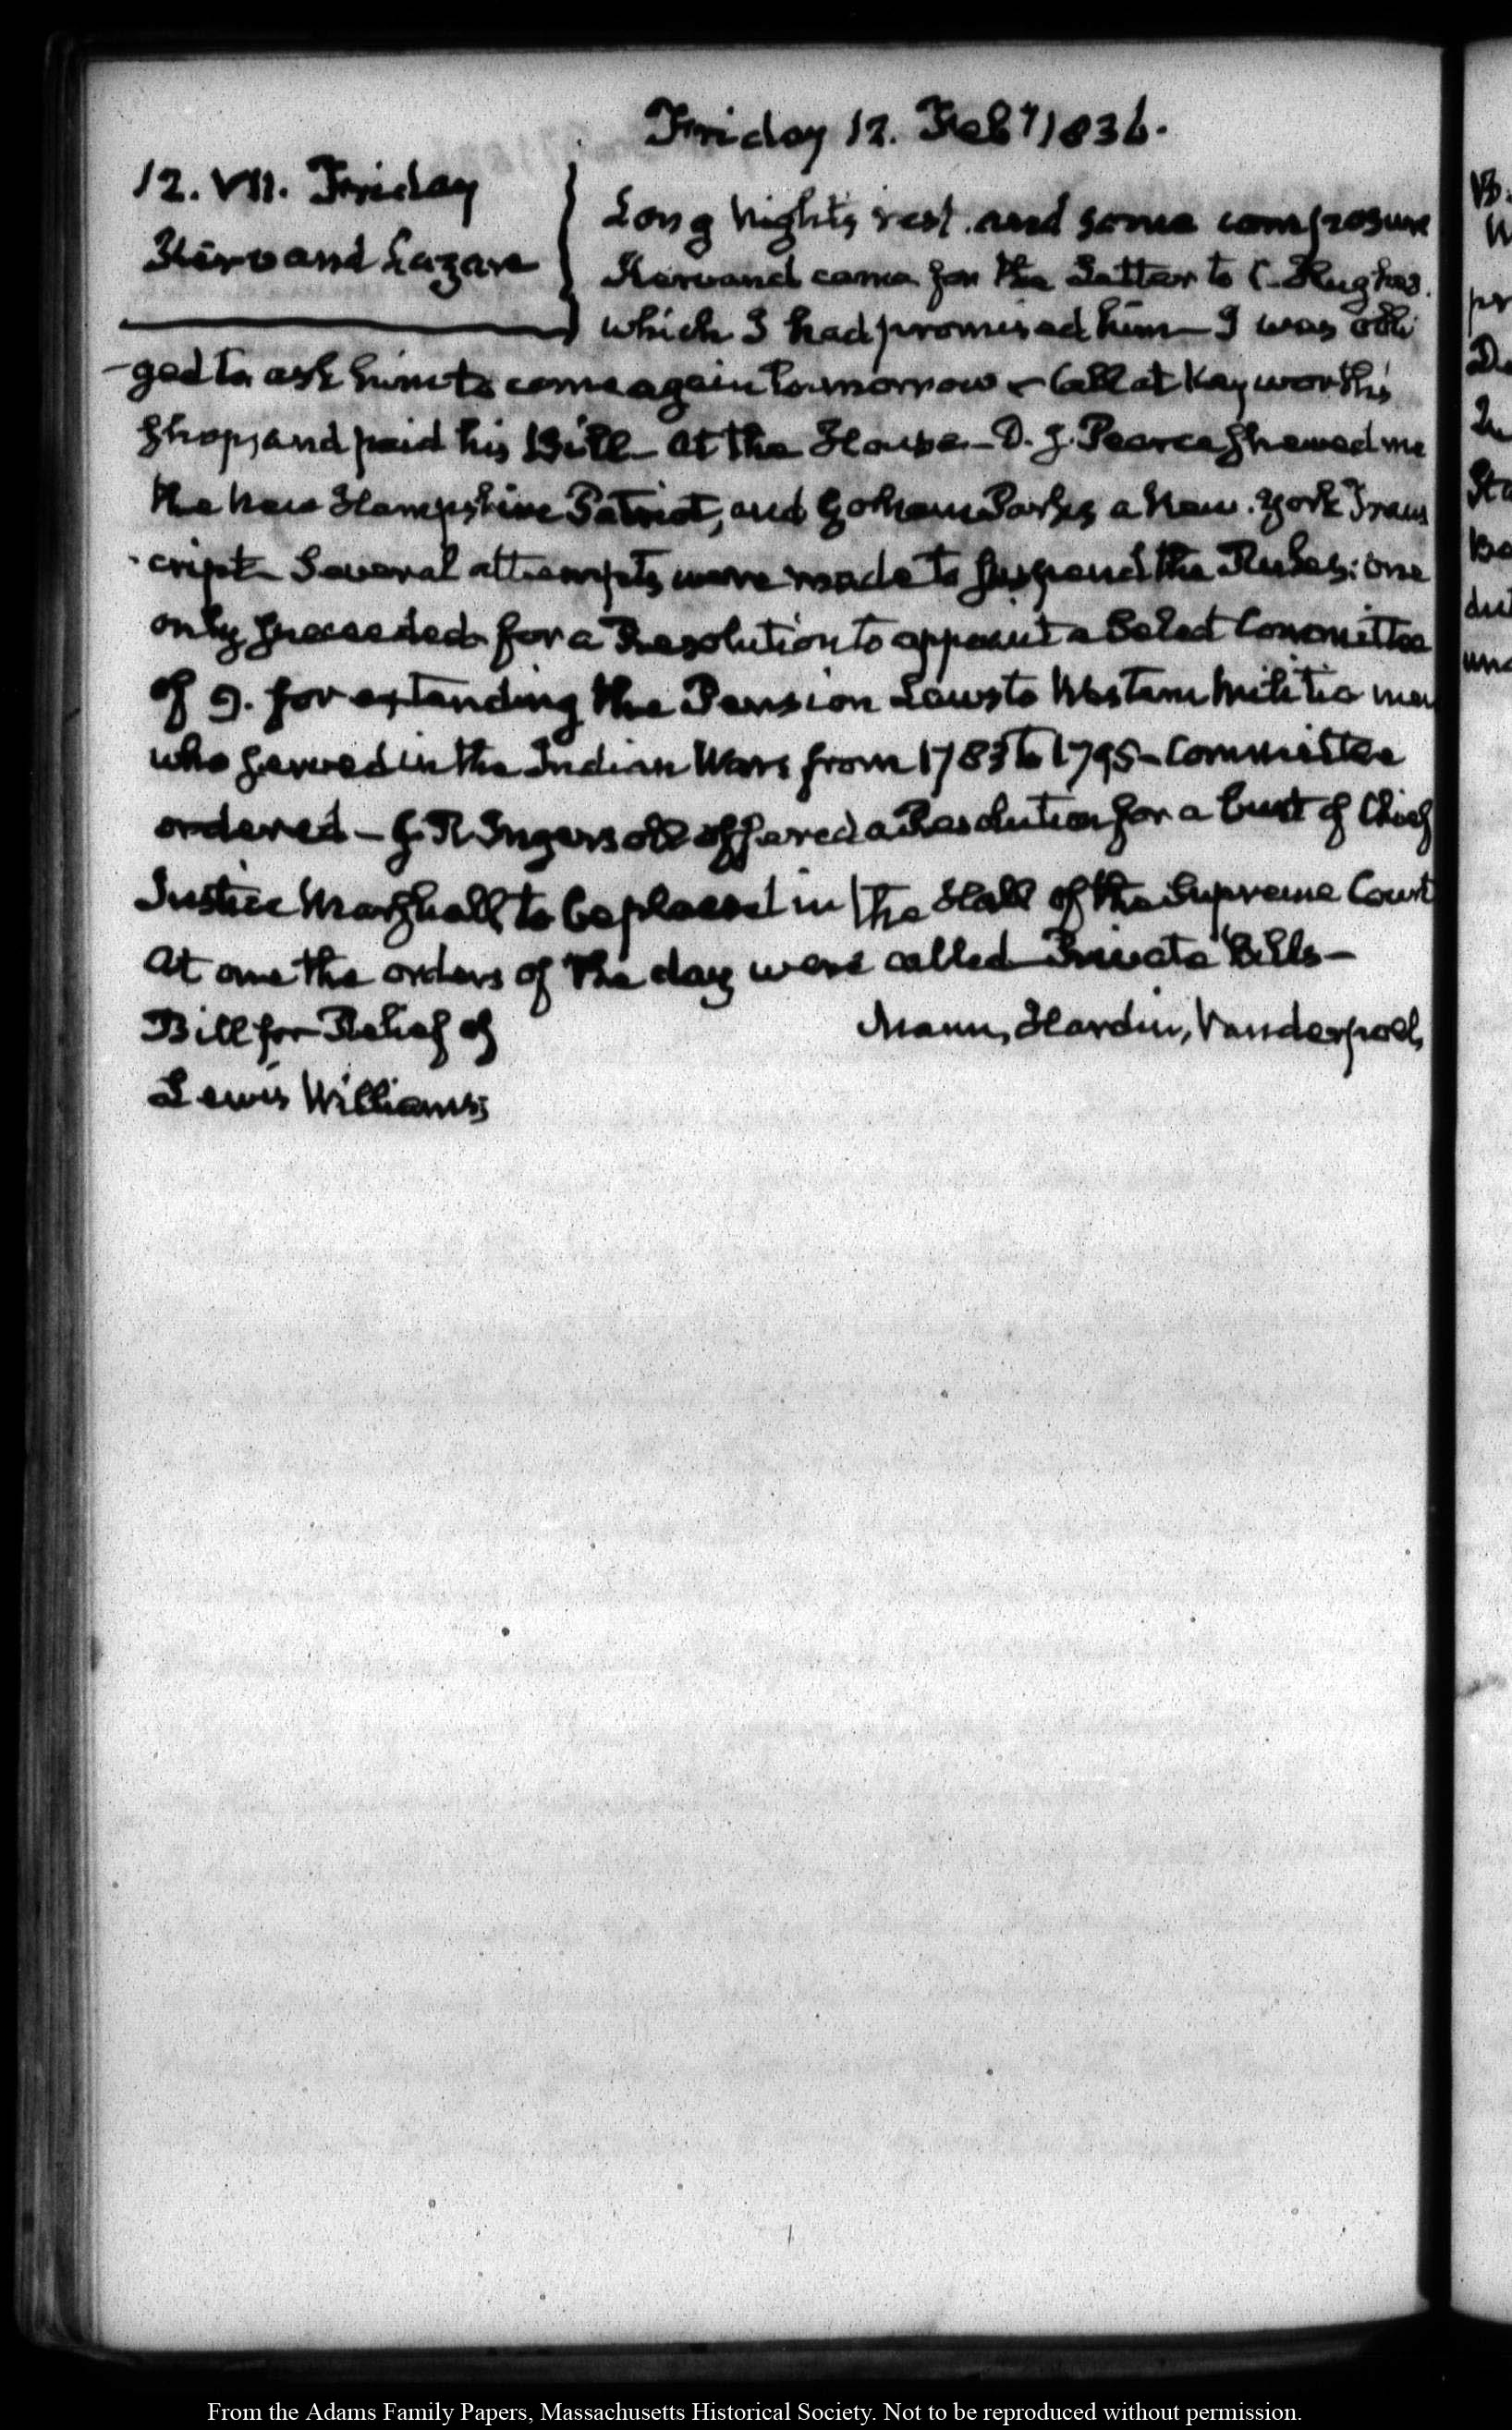 Friday 12. Feby 1836.
12. VII. Friday
Kervand Lazare
Long night's rest. and some composure
Kervand came for the Letter to C. Hughes.
which I had promised him— I was obli
-ged to ask him to come again to-morrow— Call at Kayworth's
shop, and paid his Bill— At the House— D. J. Pearce shewed me
the New Hampshire Patriot, and Gorham Parks a New-York Trans
-cript— Several attempts were made to suspend the Rules: one
only succeeded for a Resolution to appoint a Select Committee
of 9. for extending the Pension Laws to Western Militia men
who served in the Indian Wars from 1783 to 1795— Committee
ordered— J. R. Ingersoll offered a Resolution for a bust of Chief
Justice Marshall, to be placed in the Hall of the Supreme Court
At one the orders of the day were called— Private Bills—
Bill for Relief of
Mann, Hardin, Vanderpoel,
Lewis Williams;
From the Adams Family Papers, Massachusetts Historical Society. Not to be reproduced without permission.